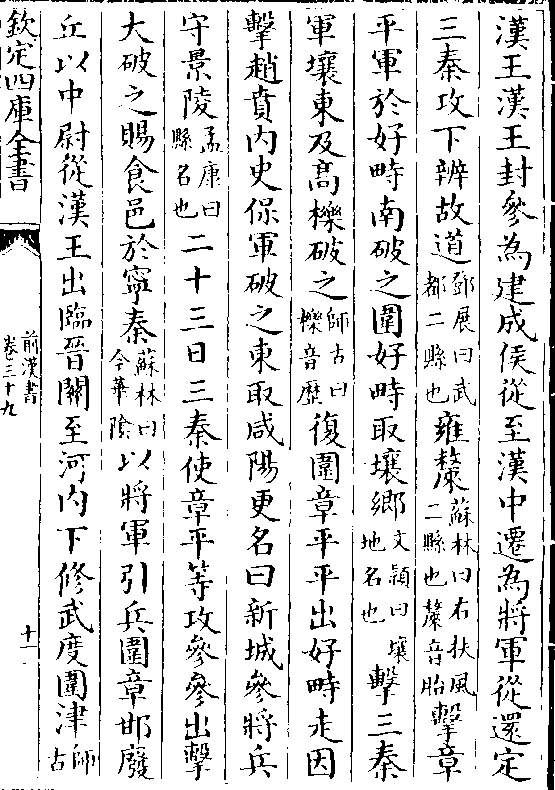 漢王漢王封參為建成侯從至漢中遷為將軍從還定
三秦攻下辨故道鄧展曰武都二縣也雍斄蘇林曰右扶風二縣也斄音胎擊章
平軍於好畤南破之圍好畤取壤鄉文頴曰壤地名也擊三秦
軍壤東及高櫟破之師古曰櫟音歴復圍章平平出好畤走因
擊趙賁内史保軍破之東取咸陽更名曰新城參將兵
守景陵孟康曰縣名也二十三日三秦使章平等攻參參出擊
大破之賜食邑於寧秦蘇林曰今華隂以將軍引兵圍章邯廢
丘以中尉從漢王出臨晉關至河内下修武度圍津師古
欽定四庫全書
前漢書
卷三十九
十一